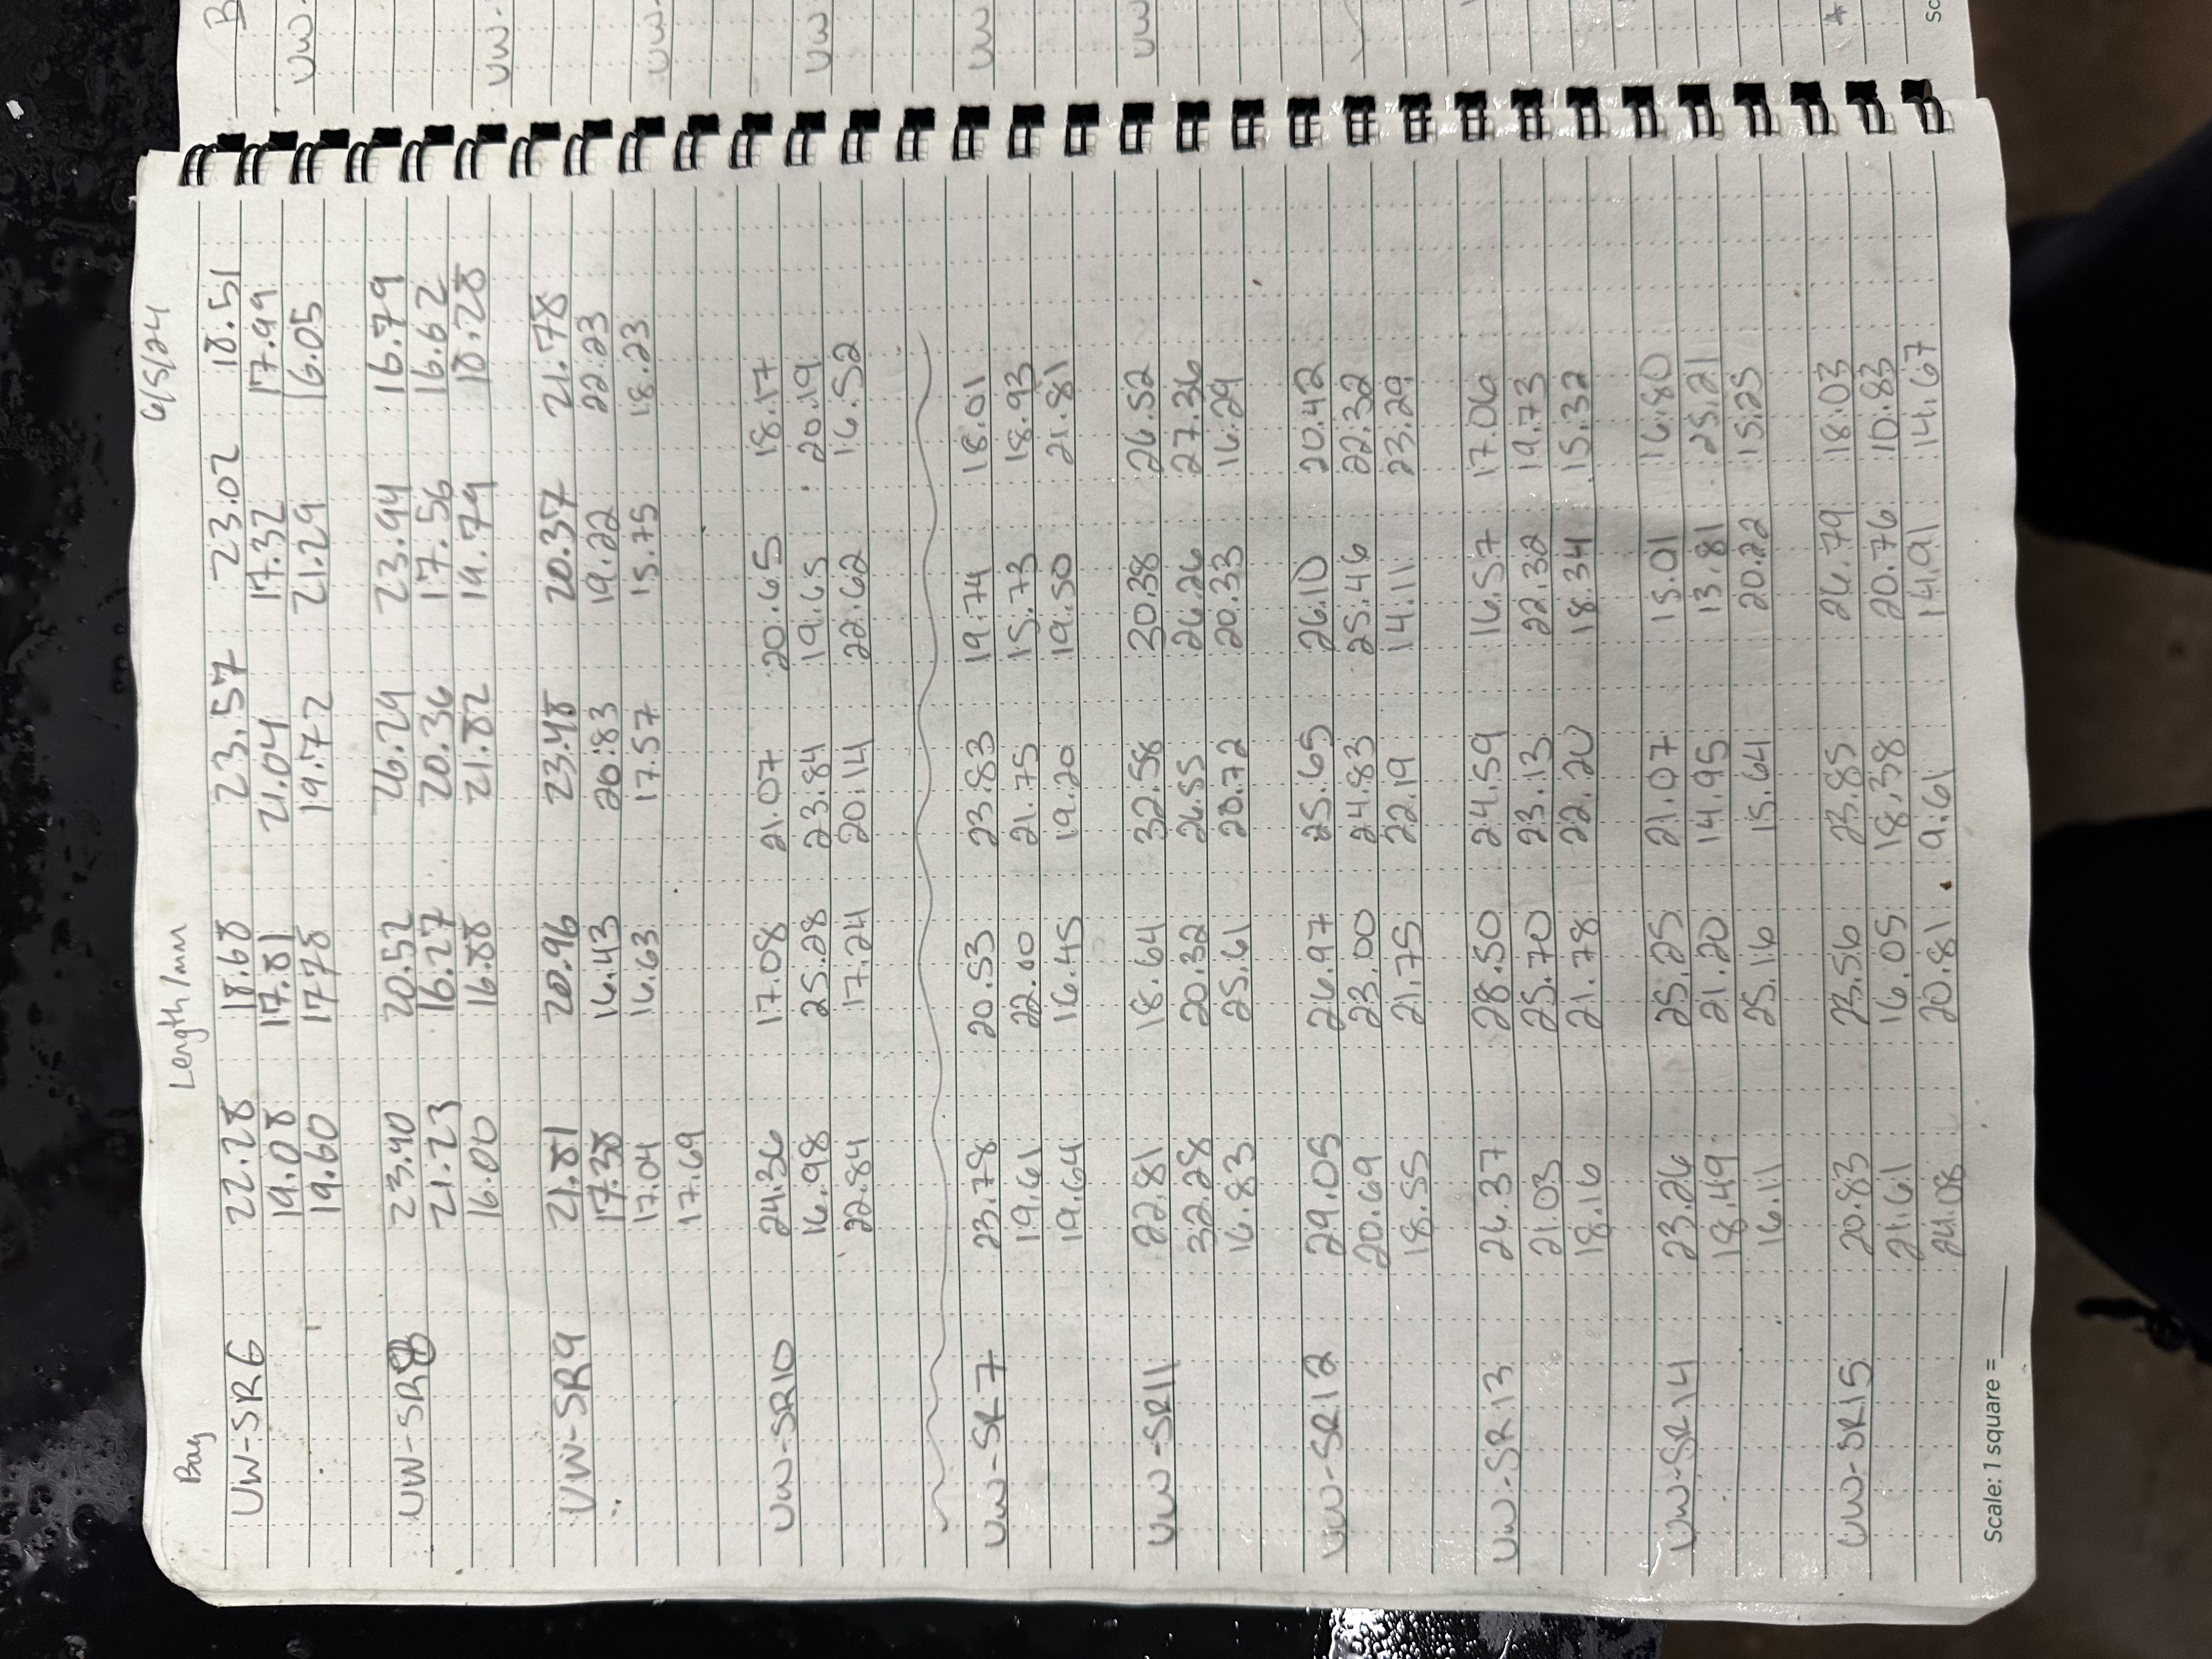 Bag Length/mm 6/5/24
UW-SR6 22.28 18.68 23.57 23.02 18.51
19.08 17.81 21.04 17.32 17.99
19.60 1778 19.72 21.29 16.05
UW-SR8 23.40 20.52 26.29 23.94 16.79
21.23 16.27 20.36 17.56 16.62
16.00 16.88 21.82 19.79 18.28
UW-SR9 21.81 20.96 23.48 20.37 21.78
17.38 16.43 20.83 19.22 22.23
17.04 16.63 17.57 15.75 18.23
17.69
UW-SR10 24.36 17.08 21.07 20.65 18.17
16.98 25.28 23.84 19.65 20.19
22.84 17.24 20.14 22.62 16.52
UW-SR7 23.78 20.53 23.83 19.74 18.01
19.61 22.00 21.75 15.73 18.93
19.64 16.45 19.20 19.50 21.81
UW-SR11 22.81 18.64 32.58 30.38 26.52
32.28 20.32 26.55 26.26 27.36
16.83 25.61 20.72 20.33 16.29
UW-SR12 29.05 26.97 25.65 26.10 20.42
20.69 23.00 24.83 25.46 22.32
18.55 21.75 22.19 14.11 23.29
UW-SR13 26.37 28.50 24.59 16.57 17.06
21.03 25.70 23.13 22.32 19.73
18.16 21.78 22.20 18.34 15.32
UW-SR14 23.26 25.25 21.07 15.01 16.80
18.49 21.20 14.95 13.81 25.21
16.11 25.16 15.64 20.22 15.25
UW-SR15 20.83 23.56 23.85 26.79 18.03
21.61 16.05 18.38 20.76 10.83
24.08 20.81 9.61 14.91 14.67
Scale: 1 square =
B
UW-
UW-
UW-
UW
UW
UW
Sc